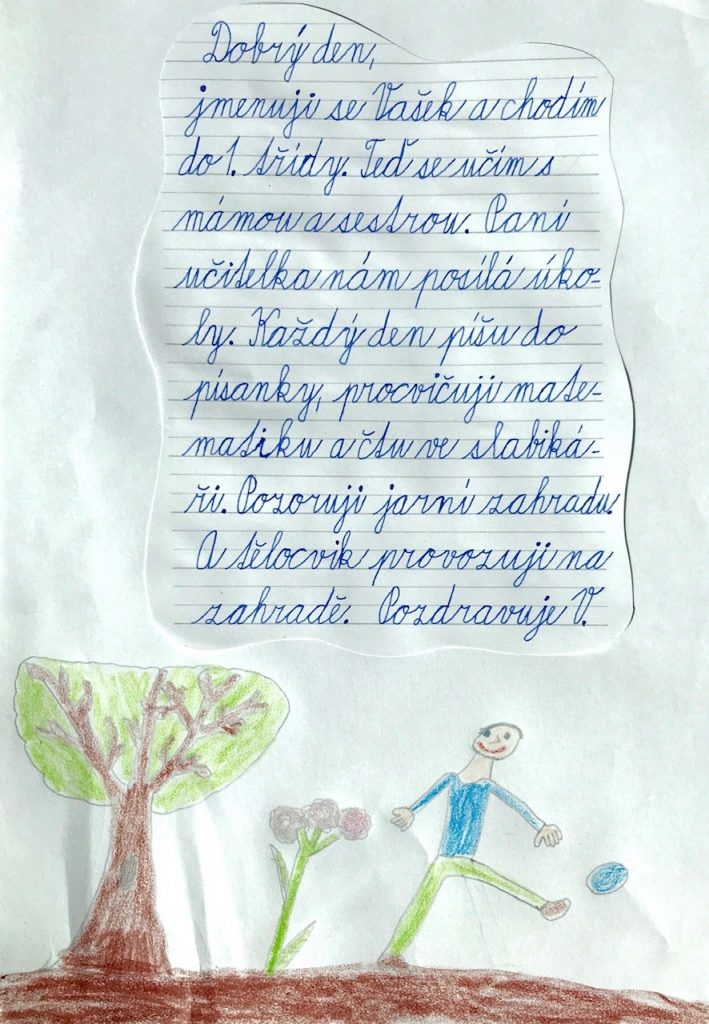 Dobrý den,
jmenuji se Vašek a chodím
do 1. třídy. Teď se učím s
mámou a sestrou. Paní
učitelka nám posílá úko-
ly. Každý den píšu do
písanky, procvičuji mate-
matiku a čtu ve slabiká-
ři. Pozoruji jarní zahradu.
A tělocvik provozuji na
zahradě. Pozdravuje V.